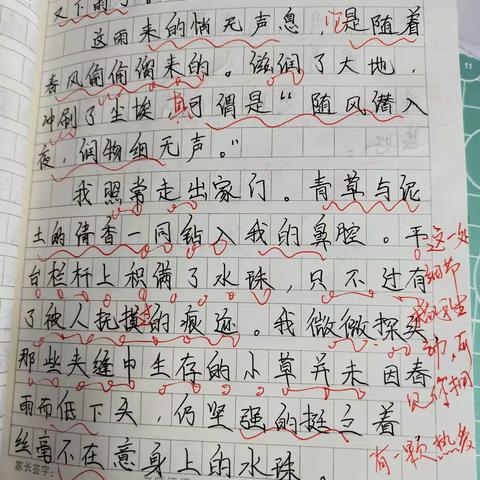 又下雨了。
这雨来的悄无声息，它是随着
春风偷偷溜来的。滋润了大地，
冲刷了尘埃，真可谓是“随风潜入
夜，润物细无声。”
我照常走出家门。青草与泥
土的清香一同钻入我的鼻腔。平
台栏杆上积满了水珠，只不过有
了被人抚摸过的痕迹。我微微探头
那些夹缝中生存的小草并未因春
雨而低下头，仍坚强的挺立着
丝毫不在意身上的水珠。
这一处
细节
生
动，可
见你拥
有一颗热爱
家长签字：